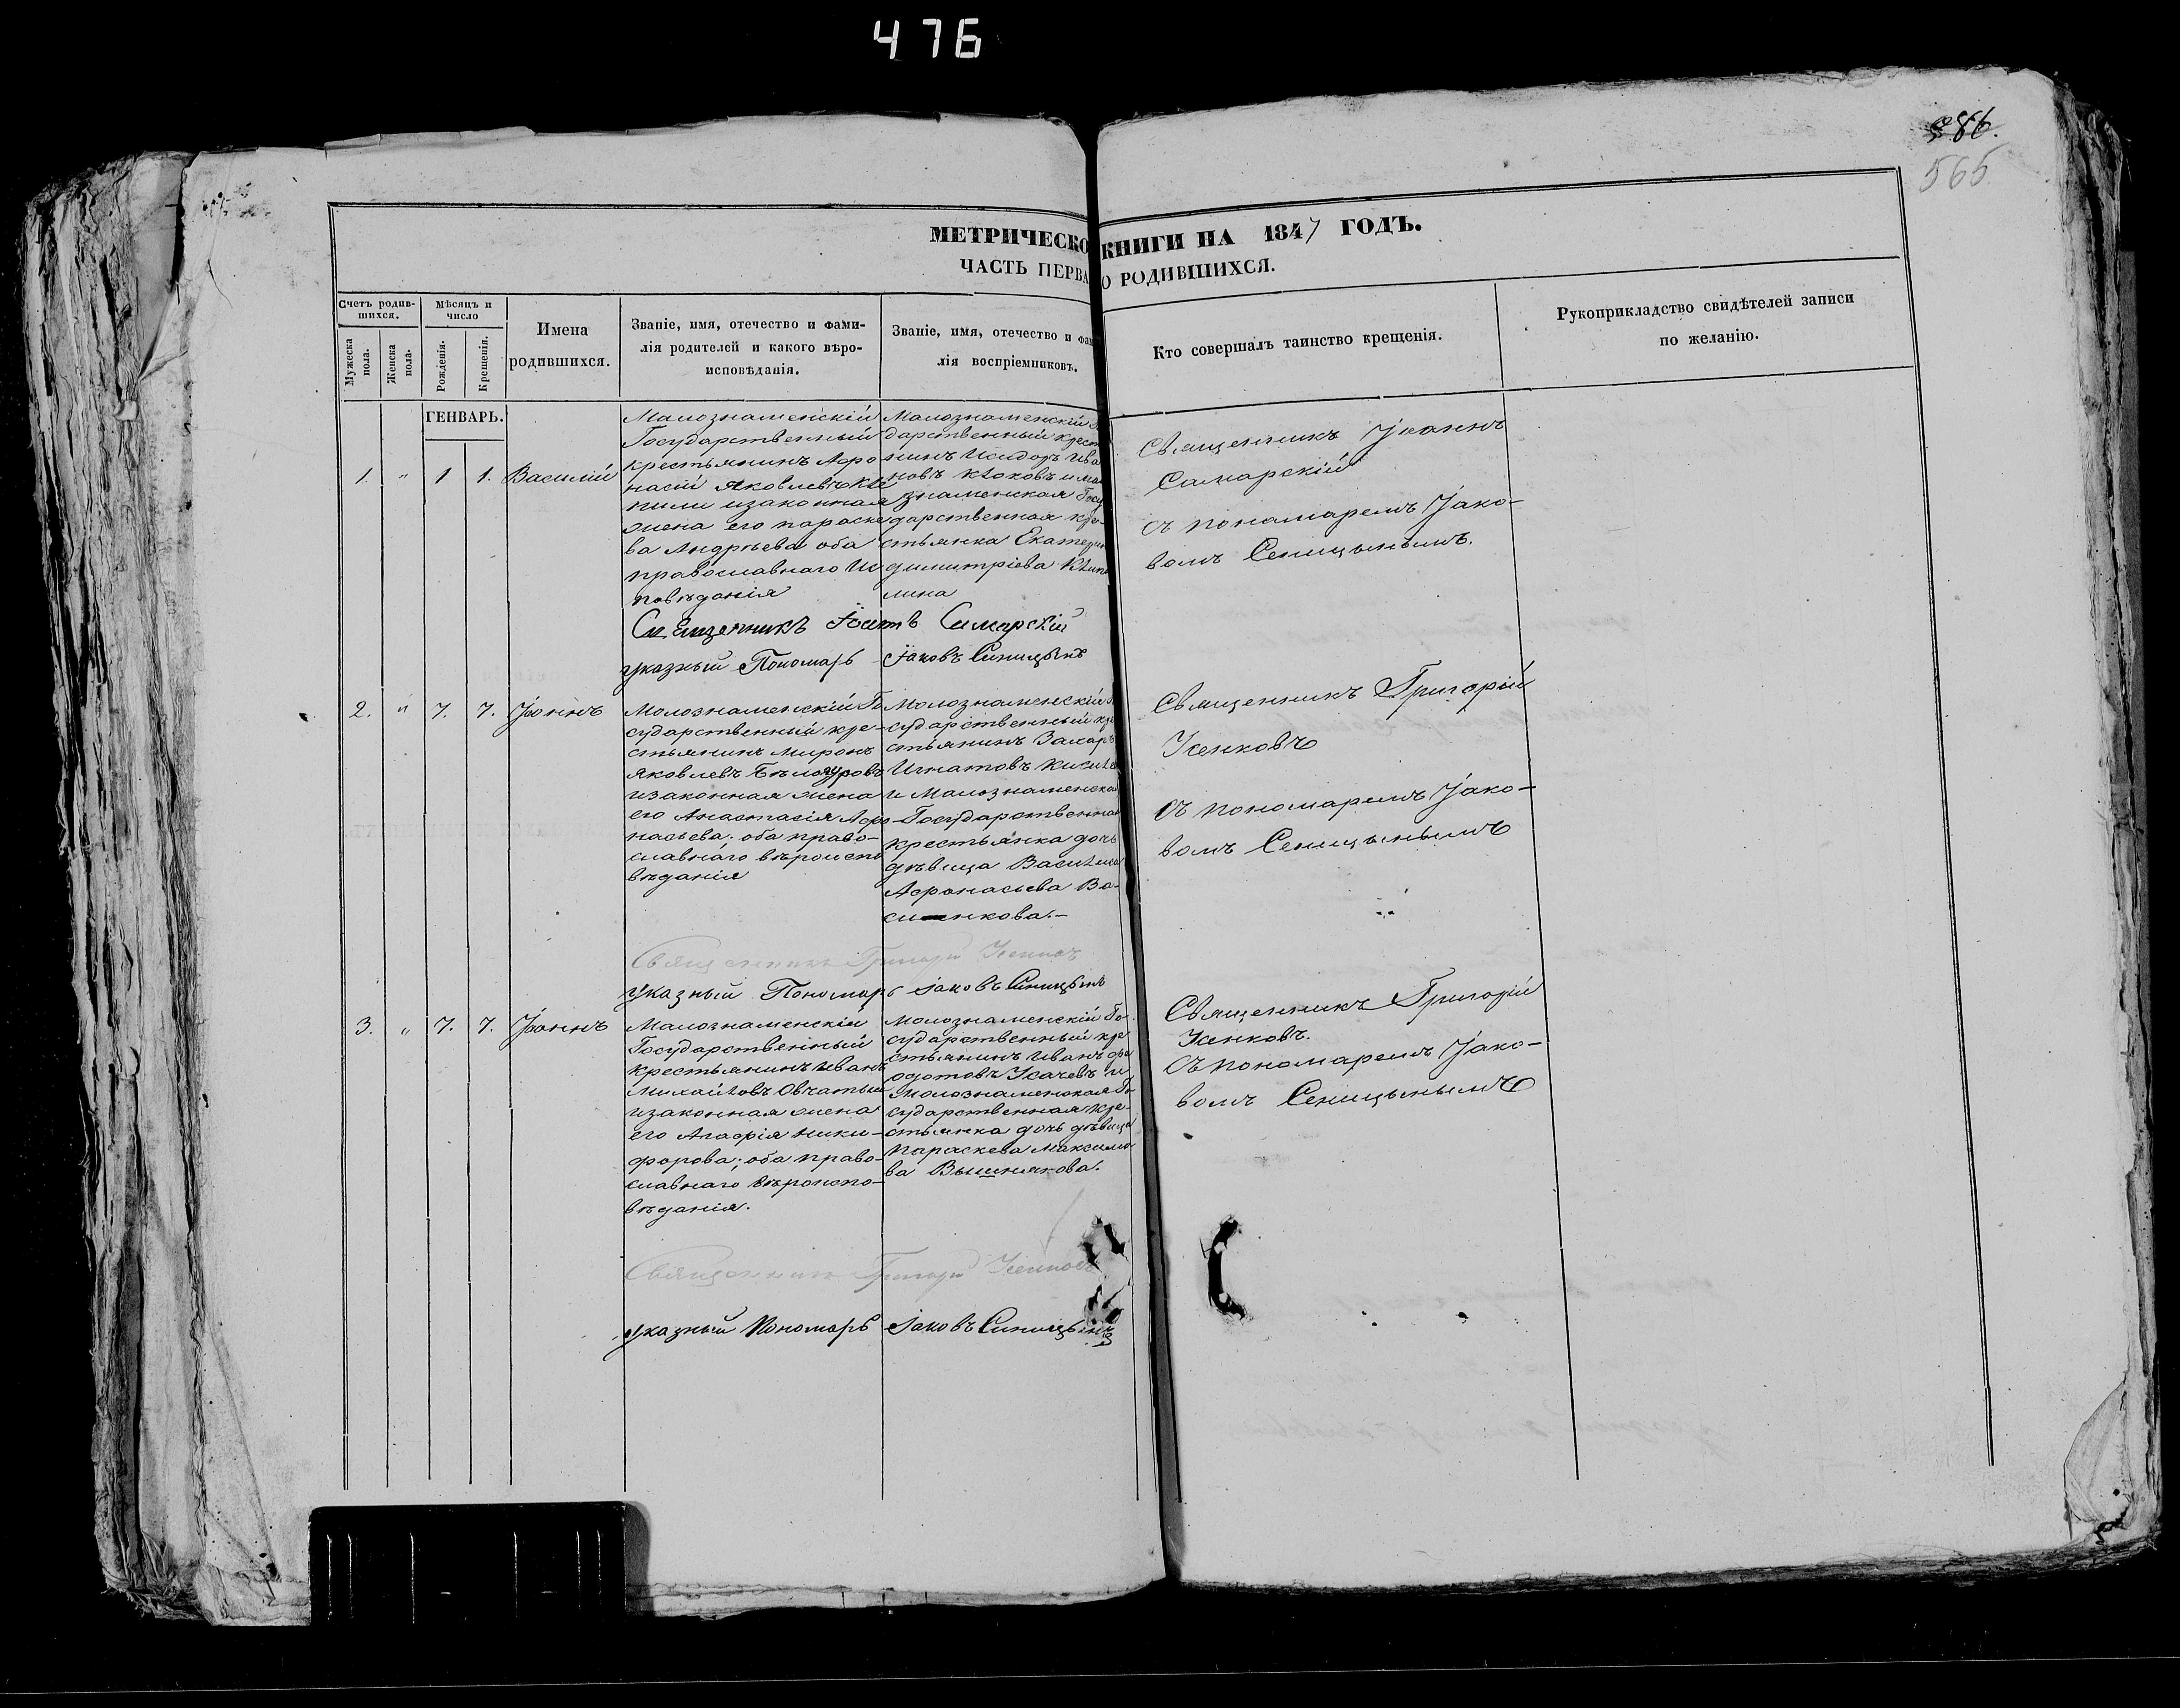 476
386.
565
МЕТРИЧЕСКО КНИГИ НА 1847 ГОДЪ.
ЧАСТЬ ПЕРВА О РОДИВШИХСЯ.
Счетъ родив-
шихся.
Мужеска пола.
Женска пола.
Мѣсяцъ и
число
Рожденія.
Крещенія.
Имена
родившихся.
Званіе, имя, отечество и фами-
лія родителей и какого вѣро-
исповѣданія.
Званіе, имя, отечество и фам
лія воспріемниковъ.
Кто совершалъ таинство крещенія.
Рукоприкладство свидѣтелей записи
по желанію.
ГЕНВАРЬ.
1. " 1 1. Василій
Малознаменскій
Государственный
крестьянинъ Афо
насій Яковлевъ
изаконная
жена его параске
ва Андрѣева оба
православнаго Ис
повѣданія
Малознаменскій
дарственный крест
нинъ Исидоръ Ива
новъ Клоковъ и мал
знаменская Госу
дарственная кре-
стьянка Екатери
димитріева
лина
Священникъ Іоаннъ
Самарскій
съ пономаремъ Іако-
вомъ Сеницынымъ.
Священникъ Іоаннъ Самарскій
указный Пономарь Іаковъ Синицынъ
2. " 7. 7. Іоаннъ
Малознаменскій Го
сударственный кре-
стьянинъ Миронъ
Яковлевъ Бѣлоуровъ
изаконная жена
его Анастасія Афо
насьева; оба право-
славнаго вѣроиспо
вѣданія
Малознаменскій
сударственный кре
стьянинъ Захаръ
Игнатовъ Кисиле
и Малознаменска
Государственная
крестьянка дочь
дѣвица Василиса
Афонасьева Ва-
сиенкова.-
Священникъ Григорій
Усенковъ
съ пономаремъ Іако-
вомъ Сеницынымъ
Священникъ Григорій Усенковъ
указный Пономарь Іаковъ Синицынъ
3. " 7. 7. Іоаннъ
Малознаменскій
Государственный
крестьянинъ Иванъ
Михайловъ
изаконная жена
его Агафія Ники-
форова; оба право-
славнаго вѣроиспо-
вѣданія.
Малознаменскій Го
сударственный кре
стьянинъ Иванъ фе
одотовъ Усачевъ и
Малознаменская Го
сударственная кре-
стьянка дочь дѣвица
Параскева Максимо
ва Вышнякова.
Священникъ Григорій
Усенковъ.
Съ пономаремъ Іако-
вомъ Сеницынымъ
Священникъ Григорій Усенковъ
указный Пономарь Іаковъ Синицынъ